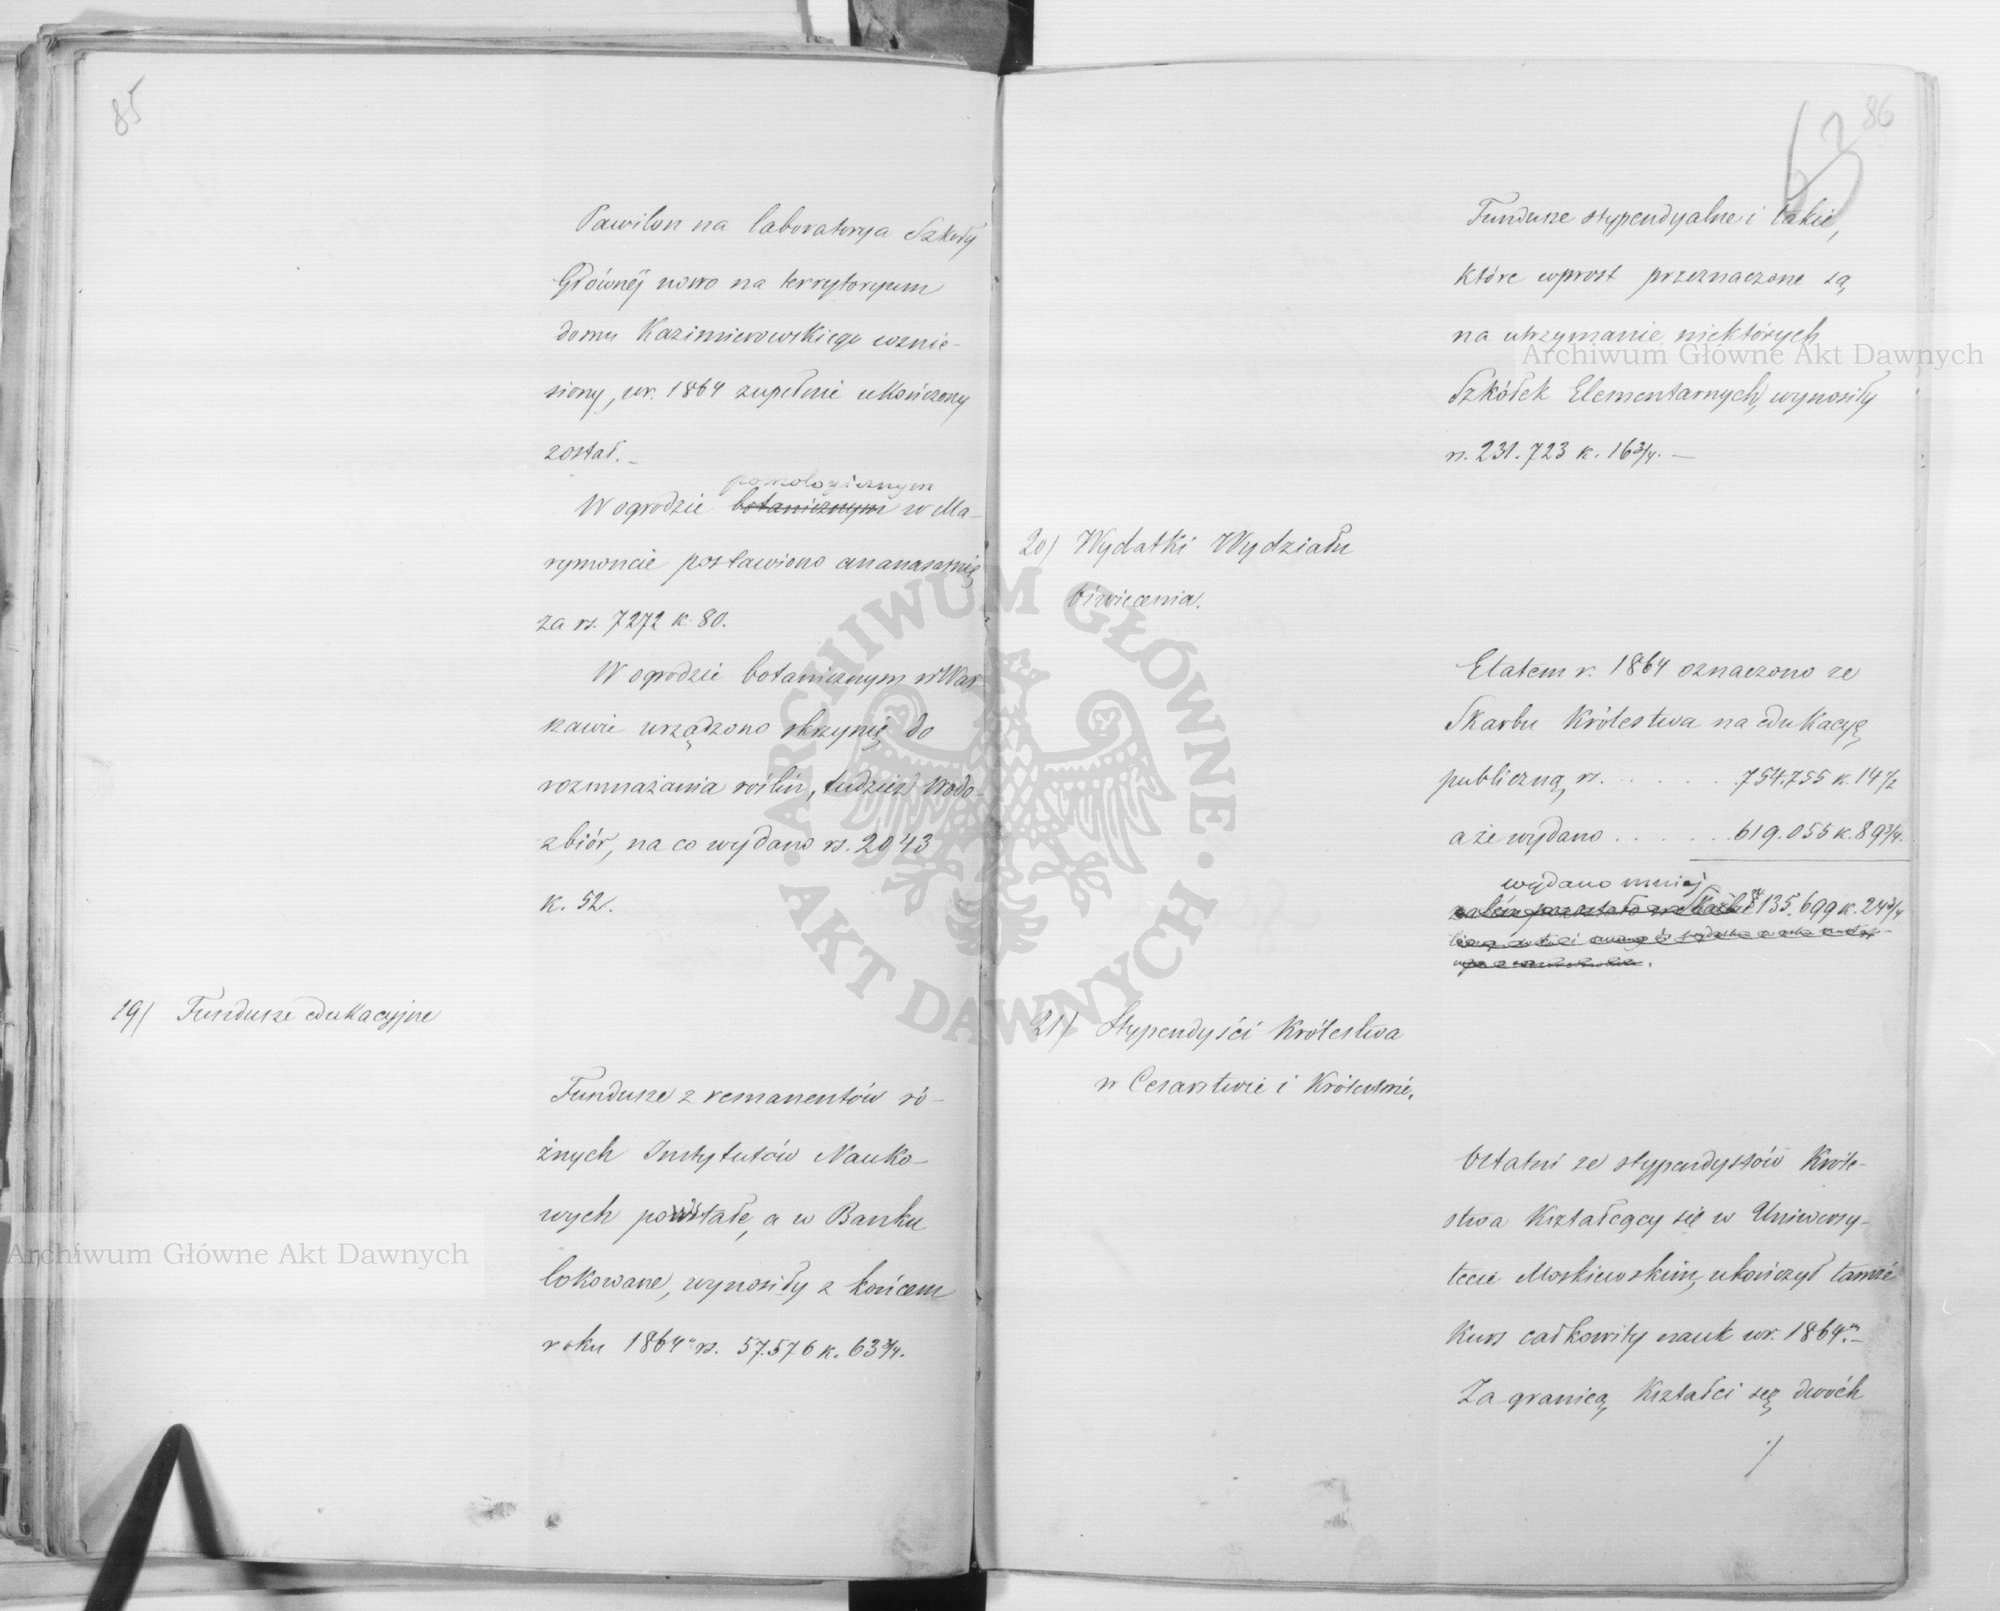 85
Pawilon na laboratorya Szkoły
Głównéj nowo na terrytoryum
domu Kazimierowskiego wznie-
siony, w r. 1864 zupełnie ukończony
został. –
pomologicznym
W ogrodzie botanicznym w Ma-
rymoncie postawiono ananasarnię
za rs. 7272 k. 80.
W ogrodzie botanicznym w War-
szawie urządzono skrzynię do
rozmnażania roślin, tudzież wodo-
zbiór, na co wydano rs. 2043
k. 52.
19/ Fundusze edukacyjne
Fundusze z remanentów ró-
żnych Instytutów Nauko-
wych powstałe, a w Banku
lokowane, wynosiły z końcem
roku 1864 rs. 57.576 k. 63 3/4.
86
63
Fundusze stypendyalne i takie,
które wprost przeznaczone są
na utrzymanie niektórych
Szkółek Elementarnych, wynosiły
rs. 231.723 k. 16 3/4. –
20/ Wydatki Wydziału
Oświecenia.
Etatem r. 1864 oznaczono ze
Skarbu Królestwa na edukacyę
publiczną rs. . . . . . . 754.755 k. 14 1/2
a że wydano . . . . . . 619.055 k. 89 3/4.
wydano mniej
zatém pozostało w Skarbie rs 135.699 k. 24 3/4
21/ Stypendyści Królestwa
w Cesarstwie i Królestwie.
Ostatni ze stypendystów Króle-
stwa Kształcący się w Uniwersy-
tecie Moskiewskim, ukończył tamże
Kurs całkowity nauk w r. 1864 m –
Za granicą Kształci się dwóch
./
Archiwum Główne Akt Dawnych
Archiwum Główne Akt Dawnych
ARCHIWUM GŁÓWNE · AKT DAWNYCH ·